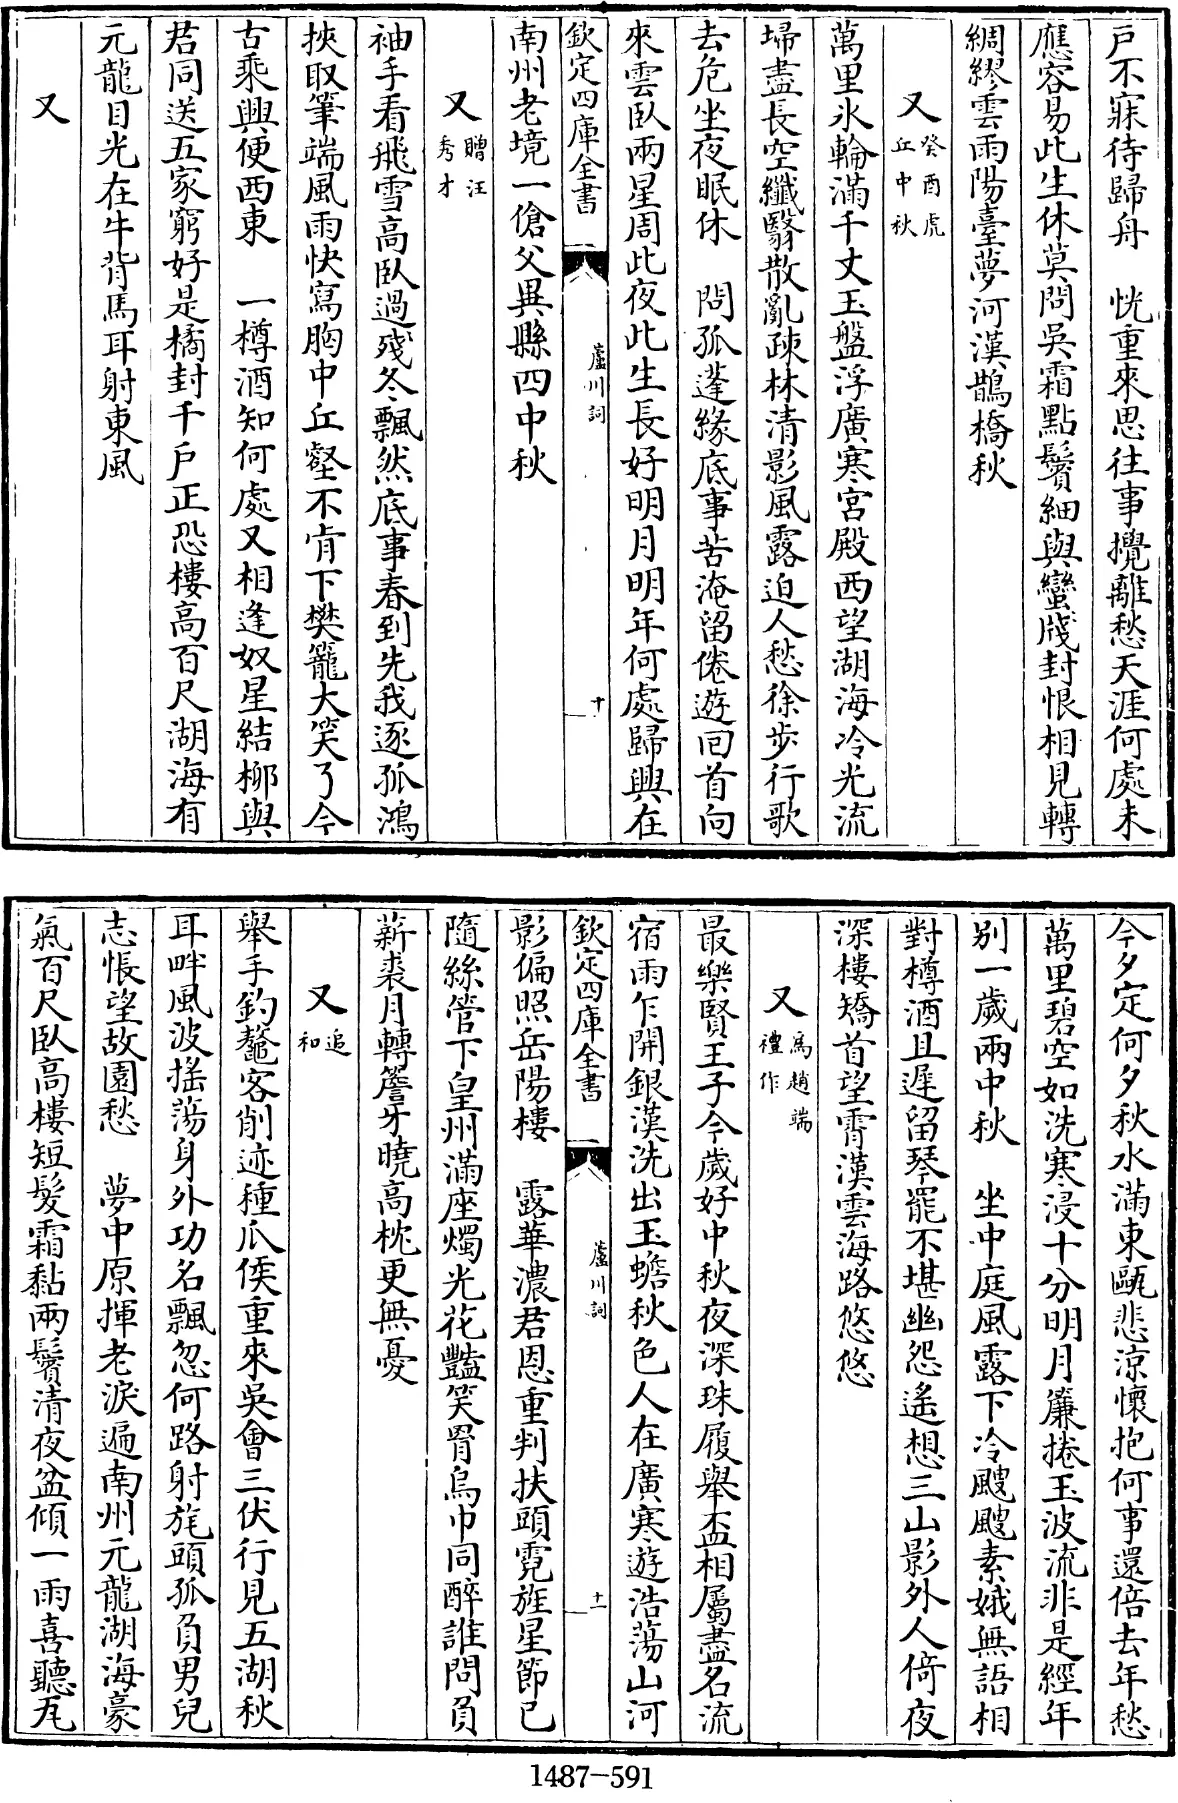 戸不寐待歸舟　恍重來思往事攪離愁天涯何處未
應容易此生休莫問吳霜點鬢細與蠻牋封恨相見轉
綢繆雲雨陽臺夢河漢鵲橋秋
又癸酉虎丘中秋
萬里氷輪滿千丈玉盤浮廣寒宮殿西望湖海冷光流
埽盡長空纖翳散亂疎林清影風露迫人愁徐步行歌
去危坐夜眠休　問孤蓬緣底事苦淹留倦遊囘首向
來雲臥兩星周此夜此生長好明月明年何處歸興在
欽定四庫全書
蘆川詞
十
南州老境一傖父異縣四中秋
又贈汪秀才
袖手看飛雪高臥過殘冬飄然底事春到先我逐孤鴻
挾取筆端風雨快寫胸中丘壑不肯下樊籠大笑了今
古乘興便西東　一樽酒知何處又相逢奴星結柳與
君同送五家窮好是橘封千戸正恐樓高百尺湖海有
元龍目光在牛背馬耳射東風
又
今夕定何夕秋水滿東甌悲涼懷抱何事還倍去年愁
萬里碧空如洗寒浸十分明月簾捲玉波流非是經年
別一歲兩中秋　坐中庭風露下冷颼颼素娥無語相
對樽酒且遲留琴罷不堪幽怨遙想三山影外人倚夜
深樓矯首望霄漢雲海路悠悠
又爲趙端禮作
最樂賢王子今歲好中秋夜深珠履舉盃相屬盡名流
宿雨乍開銀漢洗出玉蟾秋色人在廣寒遊浩蕩山河
欽定四庫全書
蘆川詞
十一
影偏照岳陽樓　露華濃君恩重判扶頭霓旌星節已
隨絲管下皇州滿座燭光花豔笑罥烏巾同醉誰問負
薪裘月轉簷牙曉高枕更無憂
又追和
舉手釣鼇客削迹種瓜侯重來吳會三伏行見五湖秋
耳畔風波搖蕩身外功名飄忽何路射旄頭孤負男兒
志悵望故園愁　夢中原揮老淚遍南州元龍湖海豪
氣百尺臥高樓短髮霜黏兩鬢清夜盆傾一雨喜聽瓦
1487-591